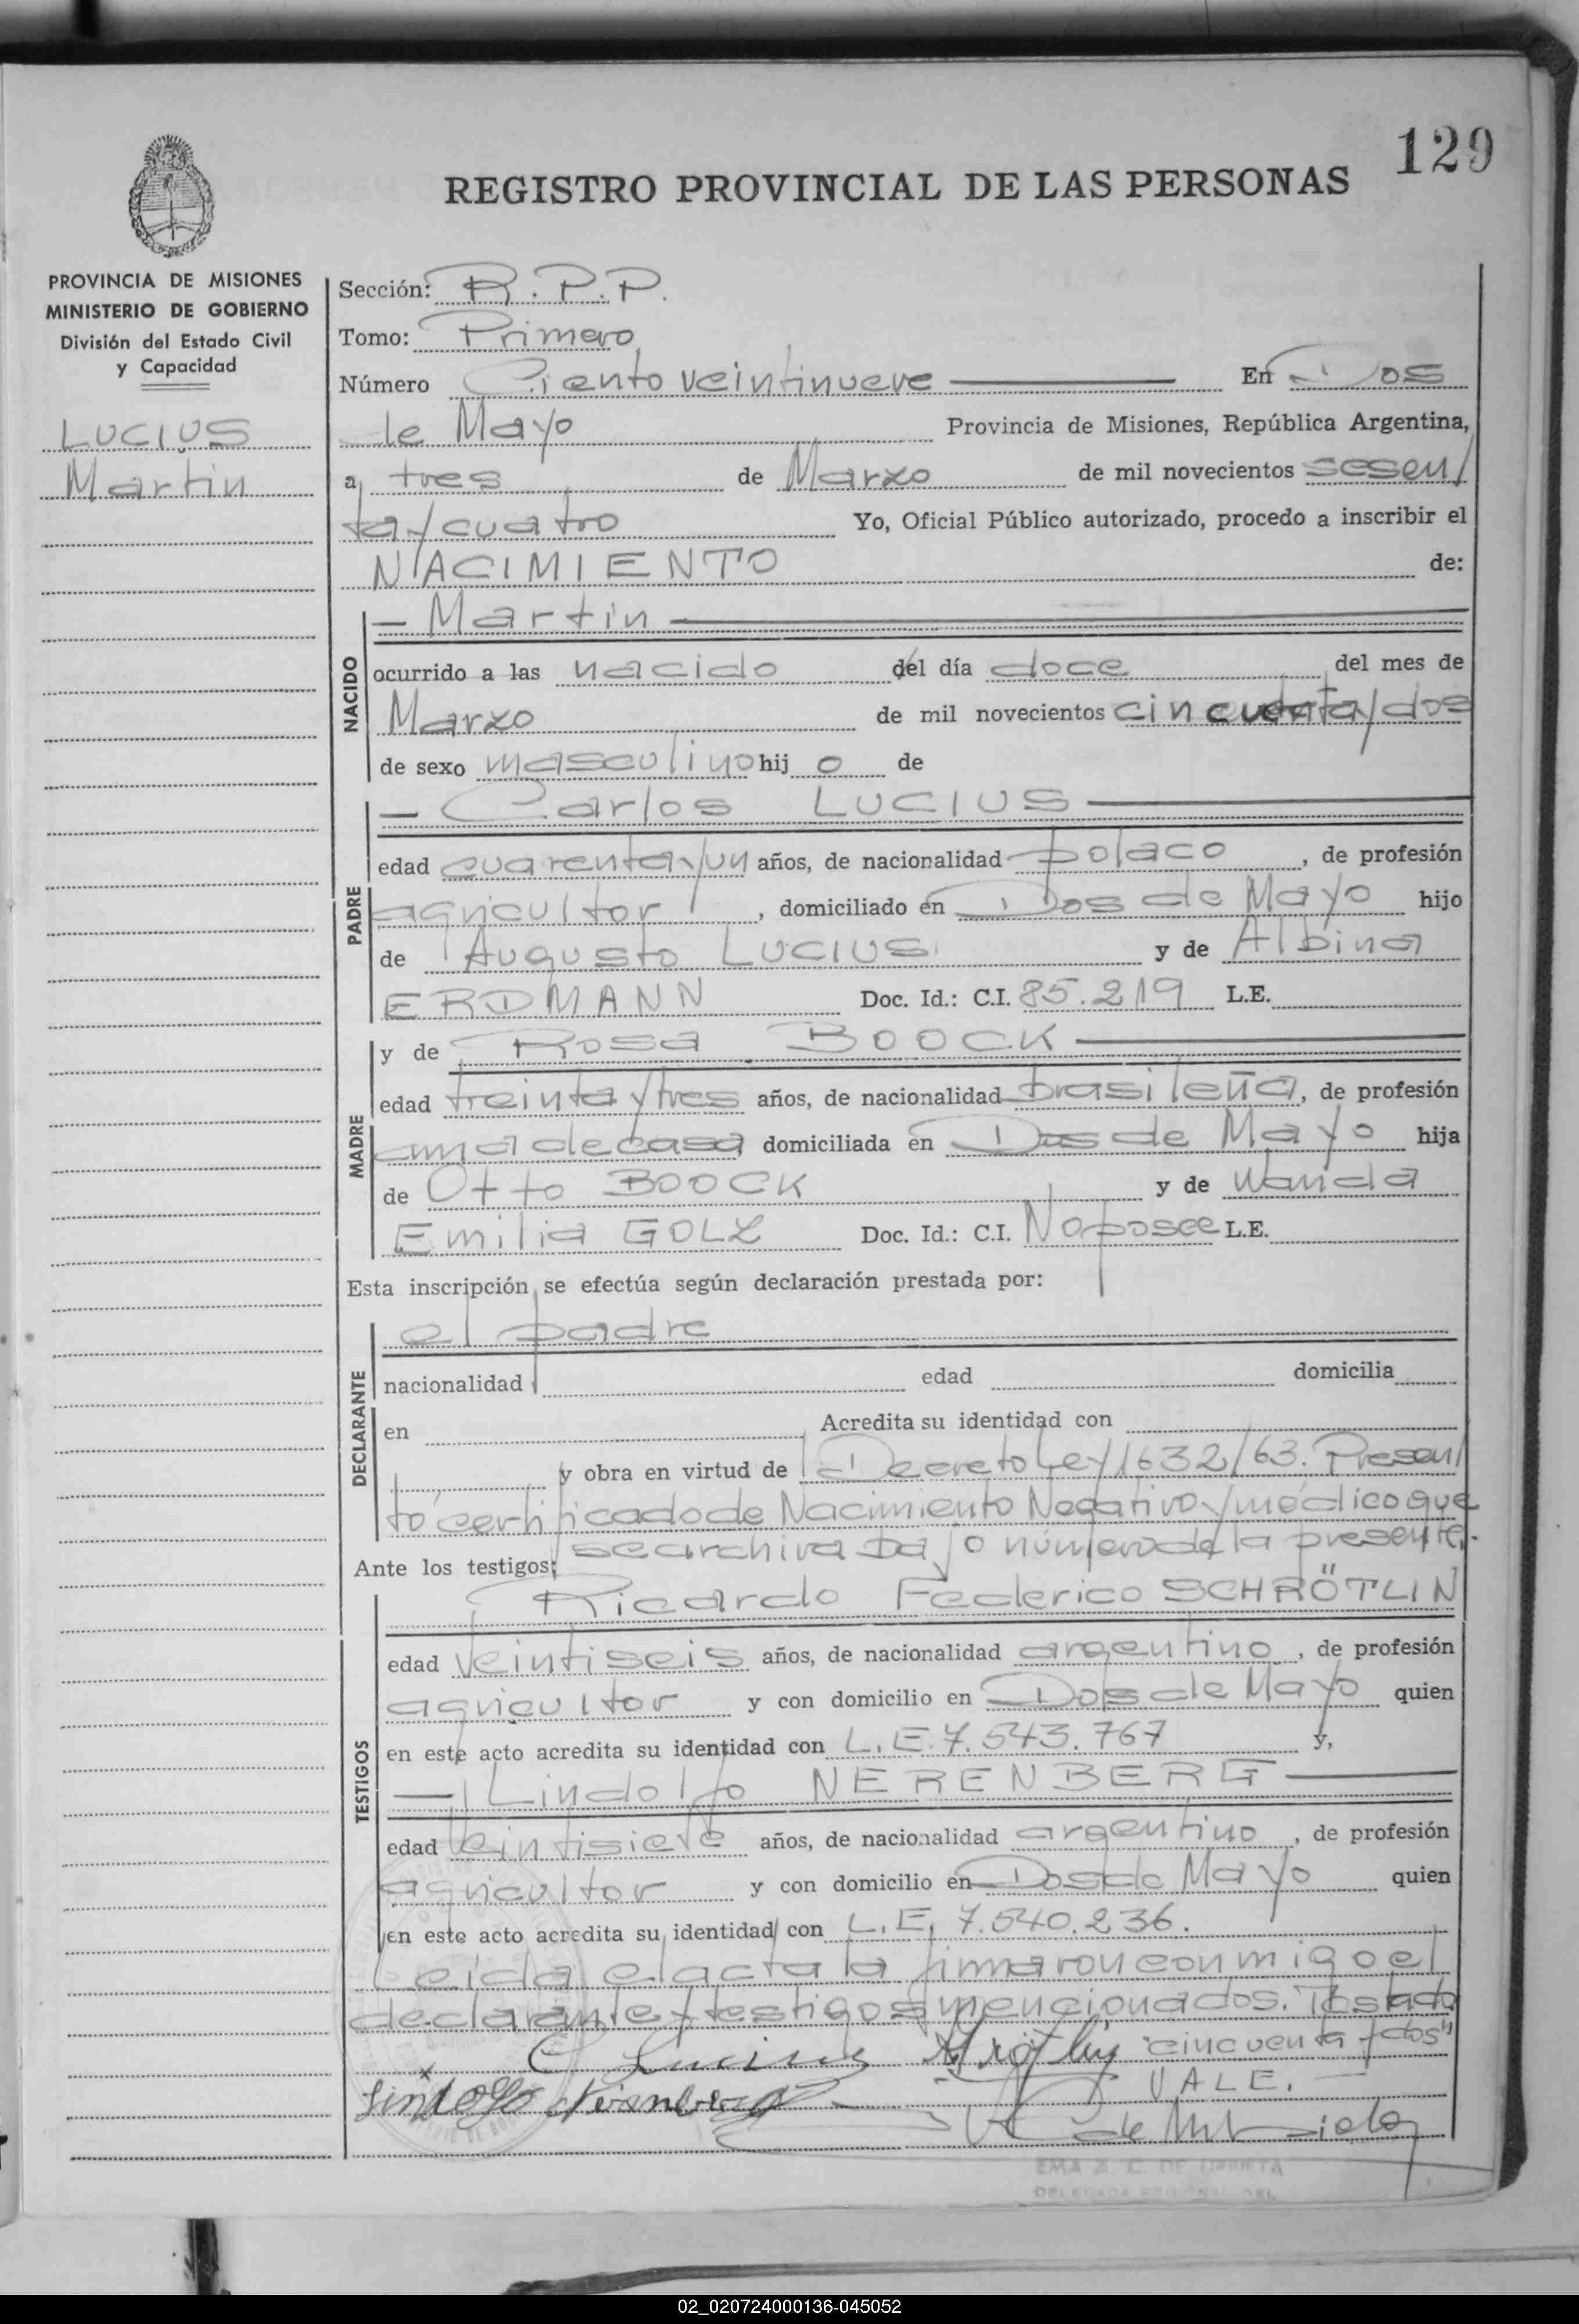 129
REGISTRO PROVINCIAL DE LAS PERSONAS
PROVINCIA DE MISIONES
MINISTERIO DE GOBIERNO
División del Estado Civil
y Capacidad
LUCIUS
Martin
Sección: R.P.P.
Tomo: Primero
Número Ciento veintinueve En Dos
de Mayo Provincia de Misiones, República Argentina,
a tres de Marzo de mil novecientos sesen/
ta y cuatro Yo, Oficial Público autorizado, procedo a inscribir el
NACIMIENTO de:
NACIDO
— Martin —
ocurrido a las nacido del día doce del mes de
Marzo de mil novecientos cincuenta y dos
de sexo masculino hijo de
PADRE
— Carlos LUCIUS —
edad cuarenta y un años, de nacionalidad polaco, de profesión
agricultor, domiciliado en Dos de Mayo hijo
de Augusto LUCIUS y de Albina
ERDMANN Doc. Id.: C.I. 85.219 L.E.
MADRE
y de Rosa BOOCK —
edad treinta y tres años, de nacionalidad brasileña, de profesión
ama de casa domiciliada en Dos de Mayo hija
de Otto BOOCK y de Wanda
Emilia GOLZ Doc. Id.: C.I. No posee L.E.
Esta inscripción se efectúa según declaración prestada por:
DECLARANTE
el padre
nacionalidad edad domicilia
en Acredita su identidad con
y obra en virtud de Decreto Ley 1632/63. Presen/
tó certificado de Nacimiento Negativo y médico que
se archiva bajo número de la presente.-
Ante los testigos:
TESTIGOS
Ricardo Federico SCHRÖTLIN
edad veintiseis años, de nacionalidad argentino, de profesión
agricultor y con domicilio en Dos de Mayo quien
en este acto acredita su identidad con L.E. 7.543.767 y,
— Lindolfo NERENBERG —
edad veintisiete años, de nacionalidad argentino, de profesión
agricultor y con domicilio en Dos de Mayo quien
en este acto acredita su identidad con L.E. 7.540.236.
Leída el acta la firmaron conmigo el
declarante y testigos mencionados. Testado
"cincuenta y dos"
C Lucius
VALE. —
Lindolfo Nerenberg
EMA E. C. DE URRIETA
DELEGADA REGIONAL DEL
02_020724000136-045052